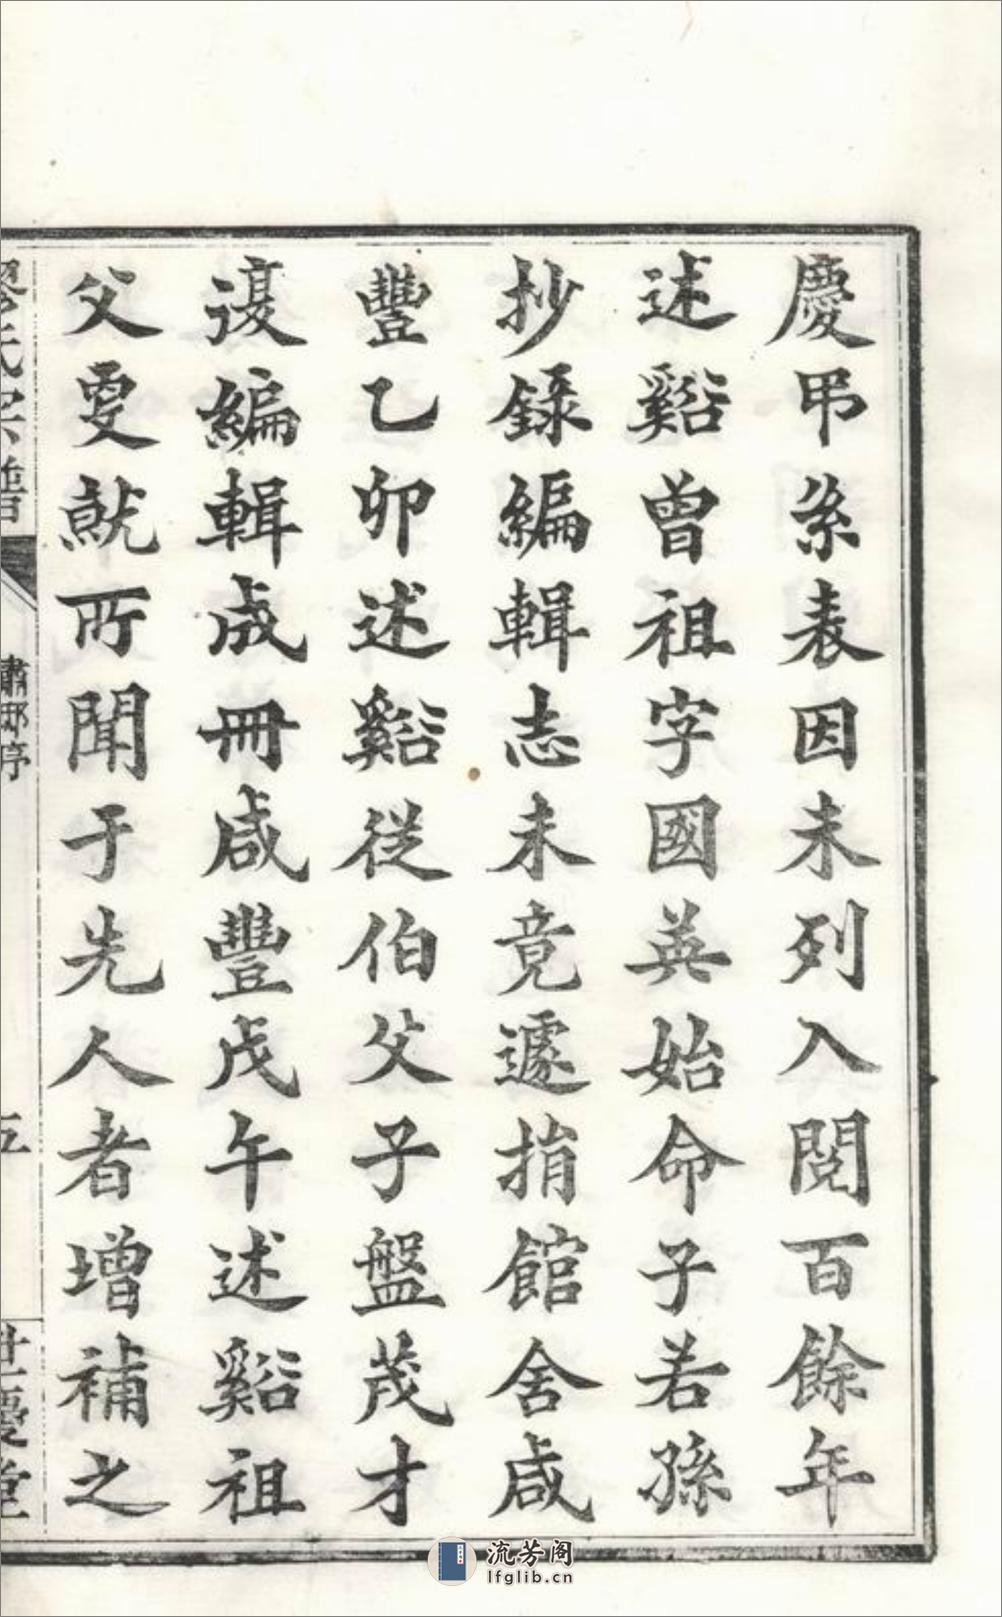 慶弔糸表因未列入閱百餘年
述谿曾祖字國英始命子若孫
抄錄編輯志未竟遽捐館舍咸
豐乙卯述谿從伯父子盤茂才
復編輯成冊咸豐戊午述谿祖
父雯就所聞于先人者增補之
繆氏宗譜
肅邨序
五
世慶堂
流芳阁
lfglib.cn